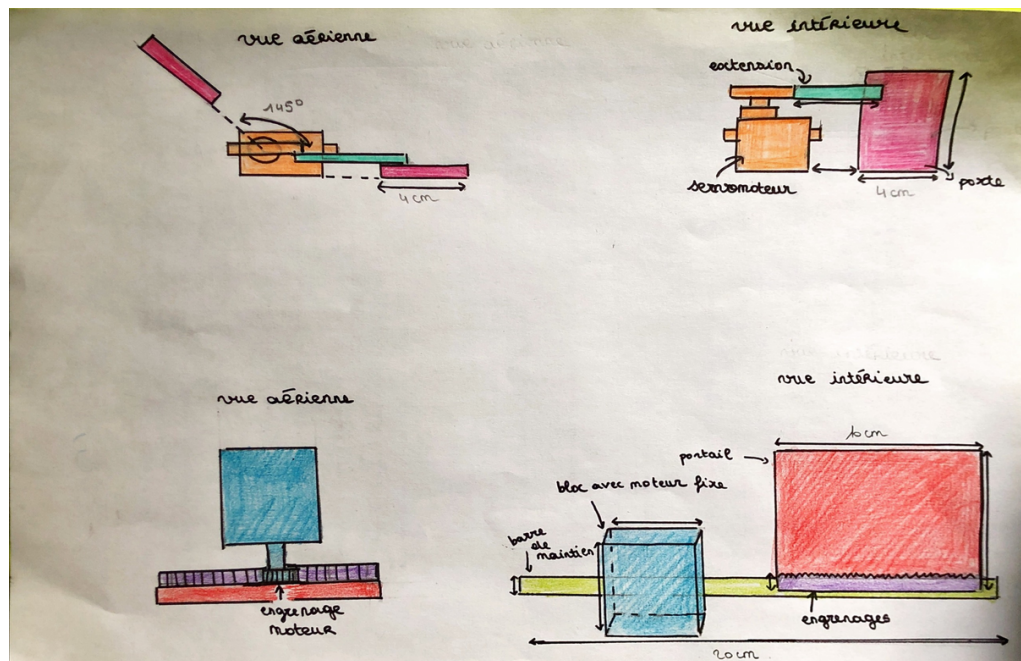 vue aérienne
145°
4 cm
vue intérieure
extension
servomoteur
4 cm
porte
vue aérienne
engrenage
moteur
vue intérieure
10 cm
portail
bloc avec moteur fixe
barre
de
maintien
engrenages
20 cm